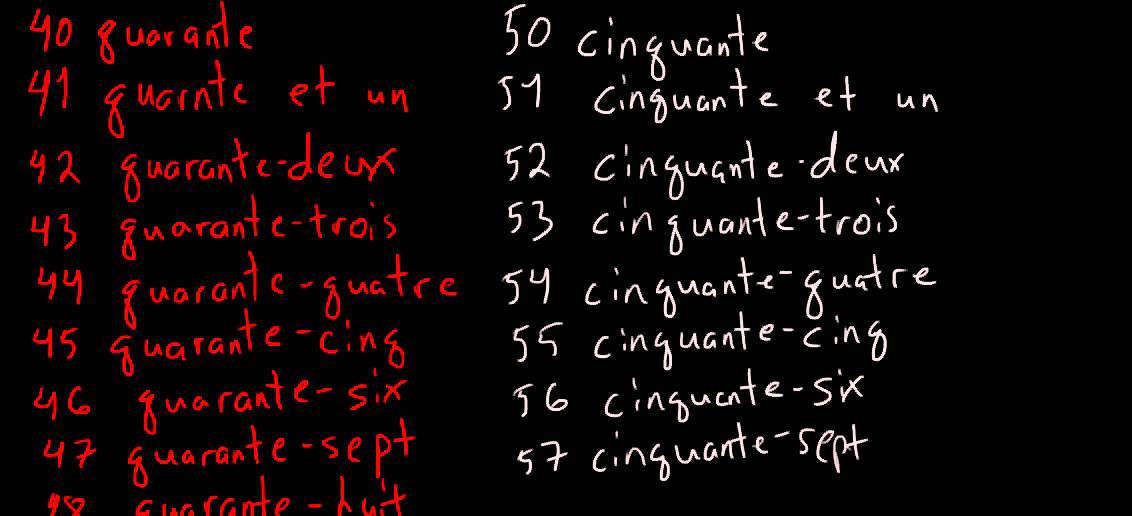 40 quarante
41 quarnte et un
42 quarante-deux
43 quarante-trois
44 quarante-quatre
45 quarante-cinq
46 quarante-six
47 quarante-sept
48 quarante-huit
50 cinquante
51 cinquante et un
52 cinquante-deux
53 cinquante-trois
54 cinquante-quatre
55 cinquante-cinq
56 cinquante-six
57 cinquante-sept